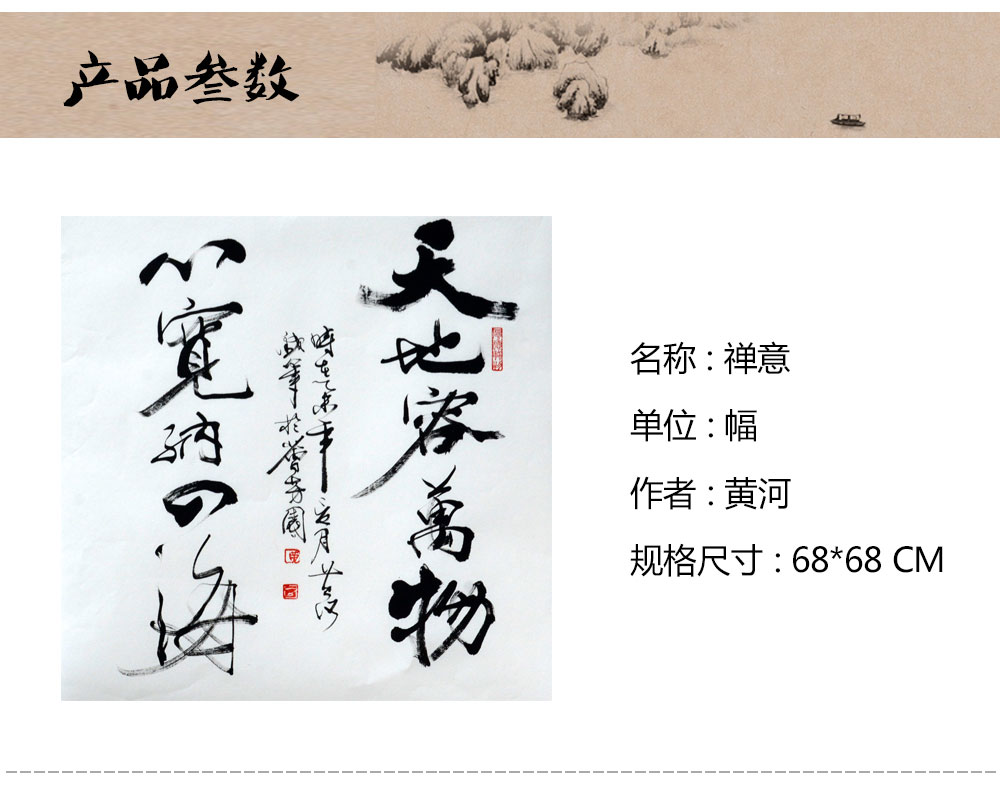 产品叁数
天地容萬物
心寬納四海
時在乙未年二月黄河
名称 : 禅意
单位 : 幅
作者 : 黄河
规格尺寸 : 68*68 CM